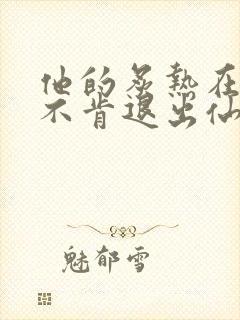 他的炙热在
不肯退出仙
魅郁雪